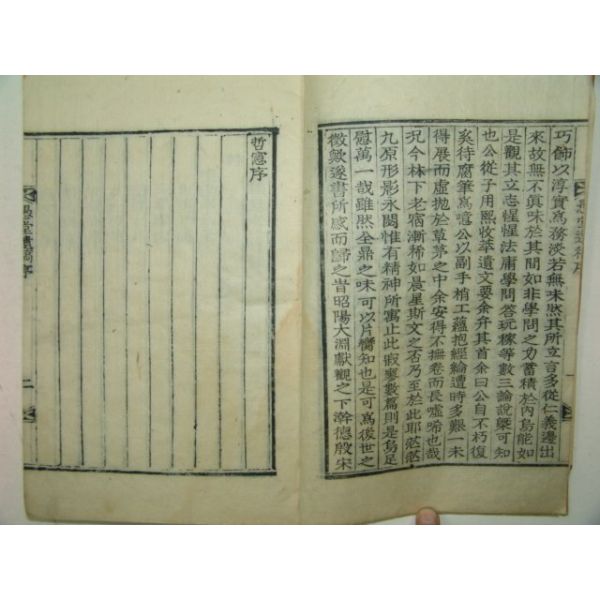 巧飾以淳實爲務淡若無味然其所立言多從仁義邊出
來故無不眞味於其間如非學問之力蓄積於內烏能如
是觀其立志惺惺法庸學問答玩稼等數三論說槩可知
也公從子用熙收草遺文要余弁其首余曰公自不朽復
奚待腐筆爲噫公以副手梢工蘊抱經綸遭時多艱一未
得展而虛抛於草茅之中余安得不撫卷而長噓唏也哉
況今林下老宿漸稀如晨星斯文之否乃至於此耶茫茫
九原形影永閟惟有精神所寓止此寂寥數篇則是烏足
慰萬一哉雖然全鼎之味可以片臠知也是可爲後世之
徵歟遂書所感而歸之昔昭陽大淵獻觀之下澣德殷宋
哲憲序